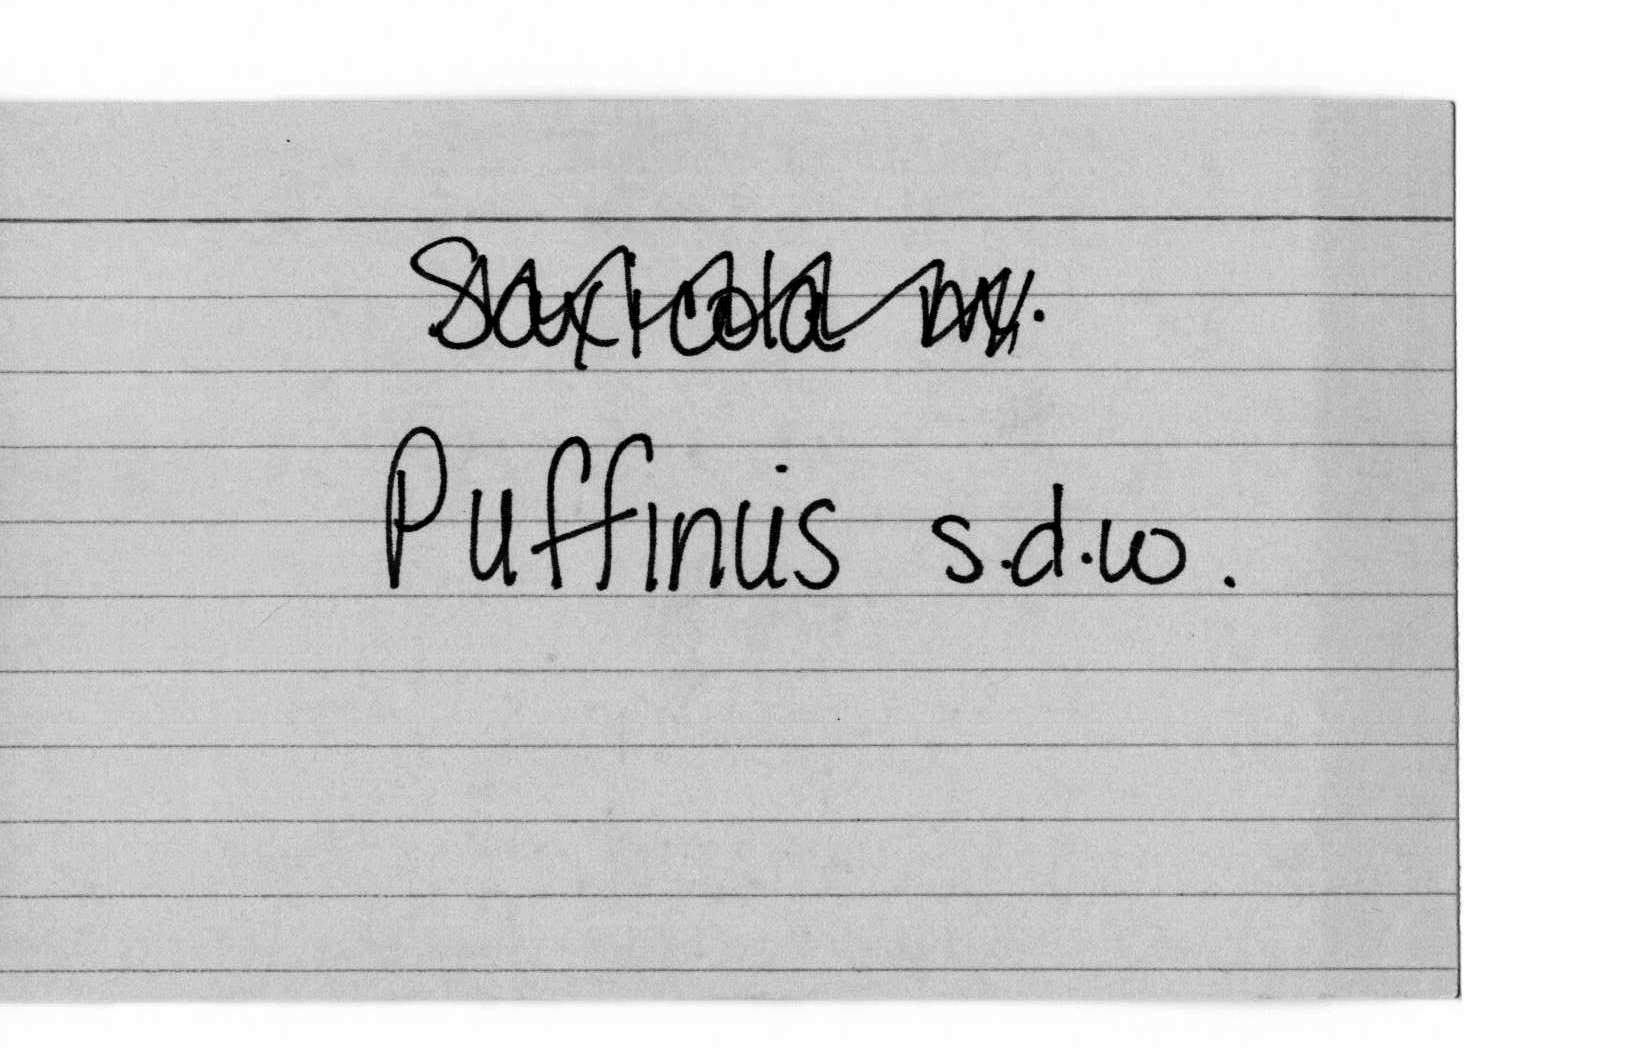 Saxicola
Puffinus s.d.w.